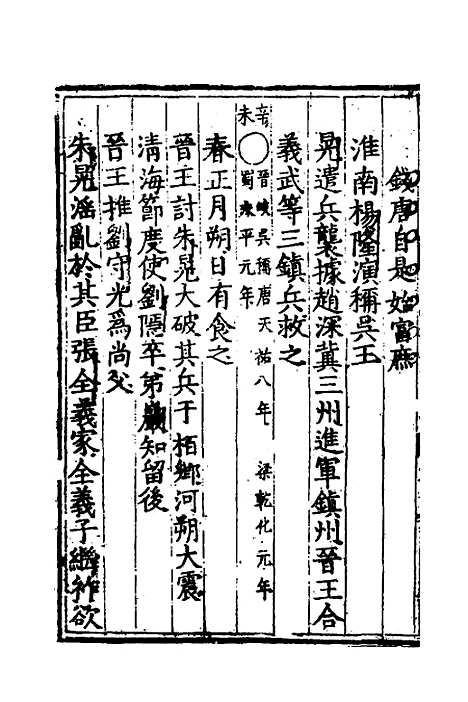 錢唐自是始富庶
淮南楊隆演稱吳王
晃遣兵襲據趙深冀三州進軍鎮州晉王合
義武等三鎮兵救之
辛未〇晉岐吳稱唐天祐八年 梁乾化元年
蜀永平元年
春正月朔日有食之
晉王討朱晃大破其兵于栢鄉河朔大震
清海節度使劉隱卒弟巖知留後
晉王推劉守光爲尚父
朱晃滛亂於其臣張全義家全義子繼祚欲